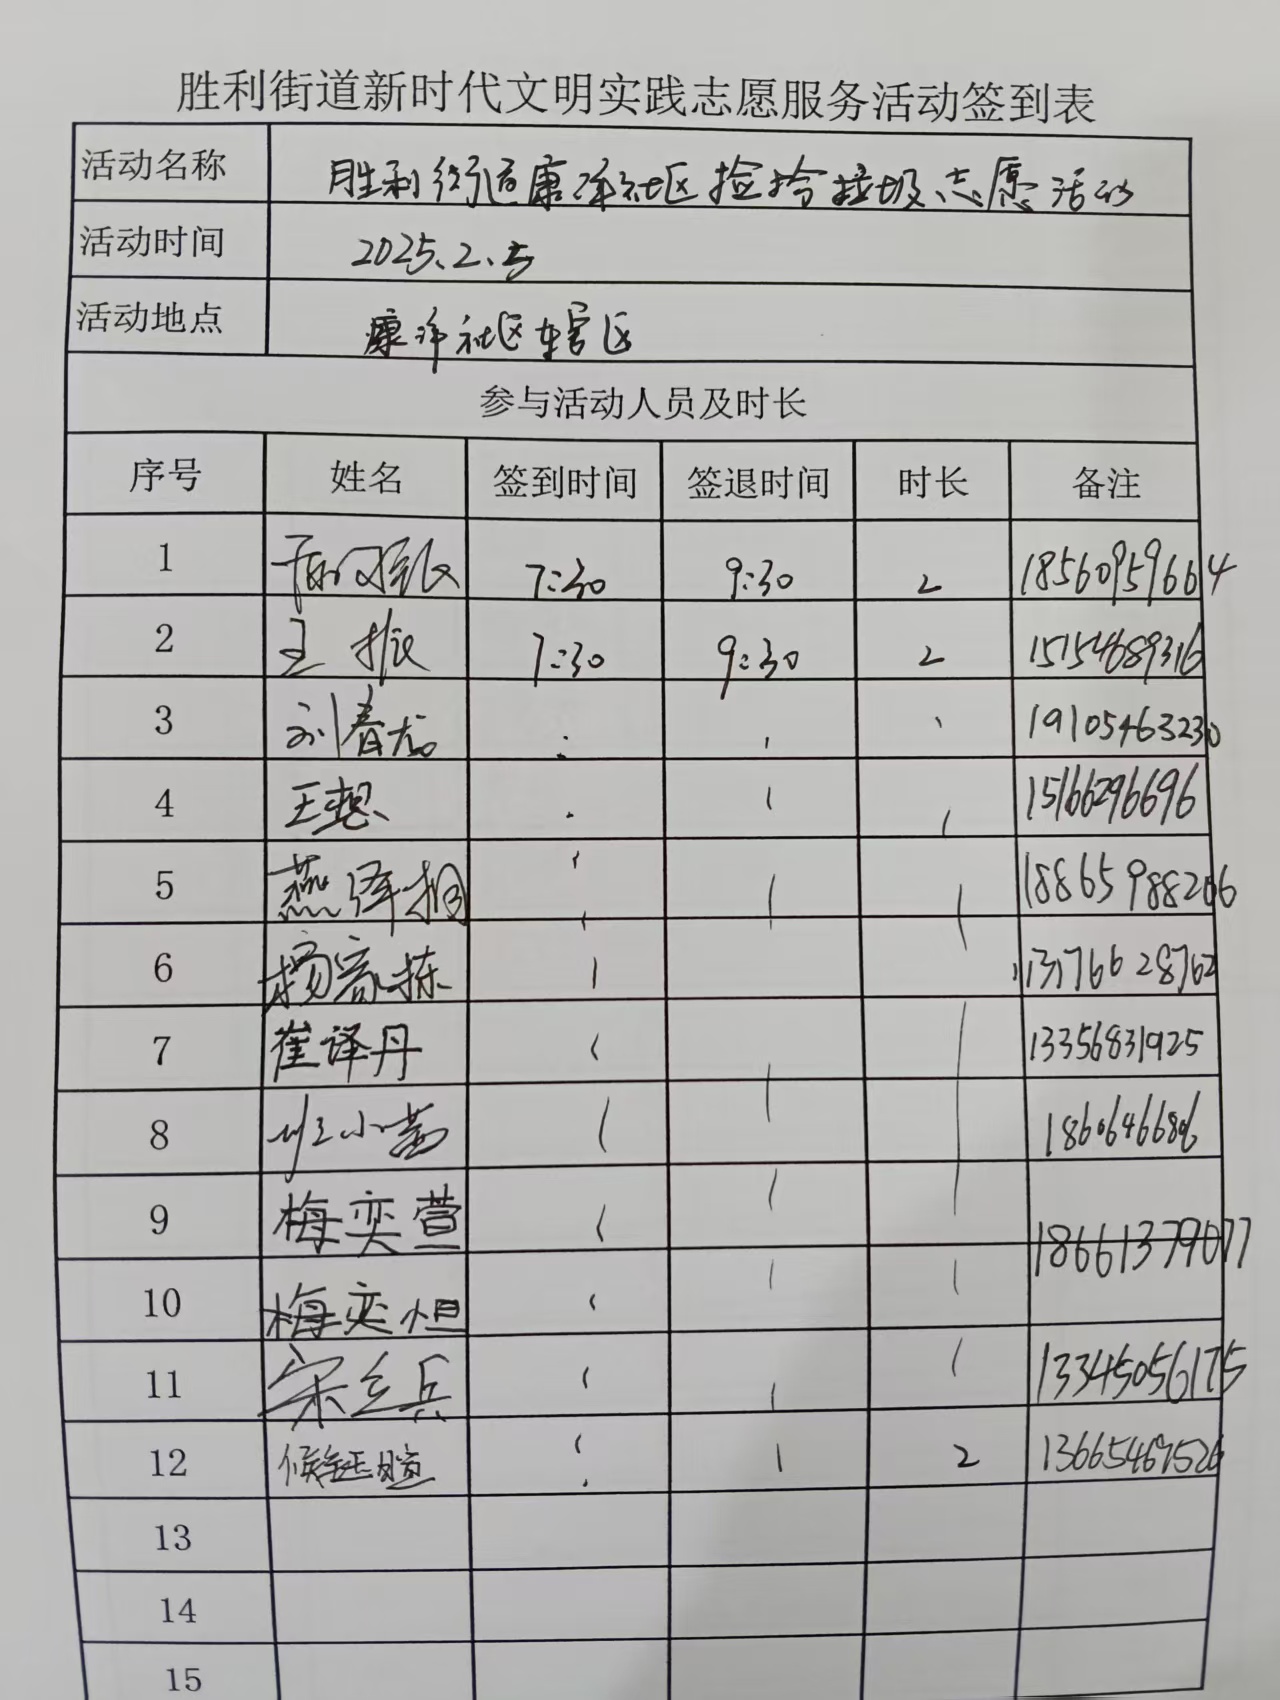 胜利街道新时代文明实践志愿服务活动签到表
活动名称 胜利街道康洋社区捡拾垃圾志愿活动
活动时间 2025.2.5
活动地点 康洋社区辖区
参与活动人员及时长
序号 姓名 签到时间 签退时间 时长 备注
1 7:30 9:30 2 18560959664
2 王振 7:30 9:30 2 15154689316
3 刘春龙 19105463230
4 王想 15166296696
5 燕泽桐 18865988206
6 杨家栋 13176628762
7 崔译丹 13356831925
8 小茜 18606466806
9 梅奕萱 18661379077
10 梅奕恒
11 宋立兵 13345056175
12 侯钰暄 2 13665467526
13
14
15